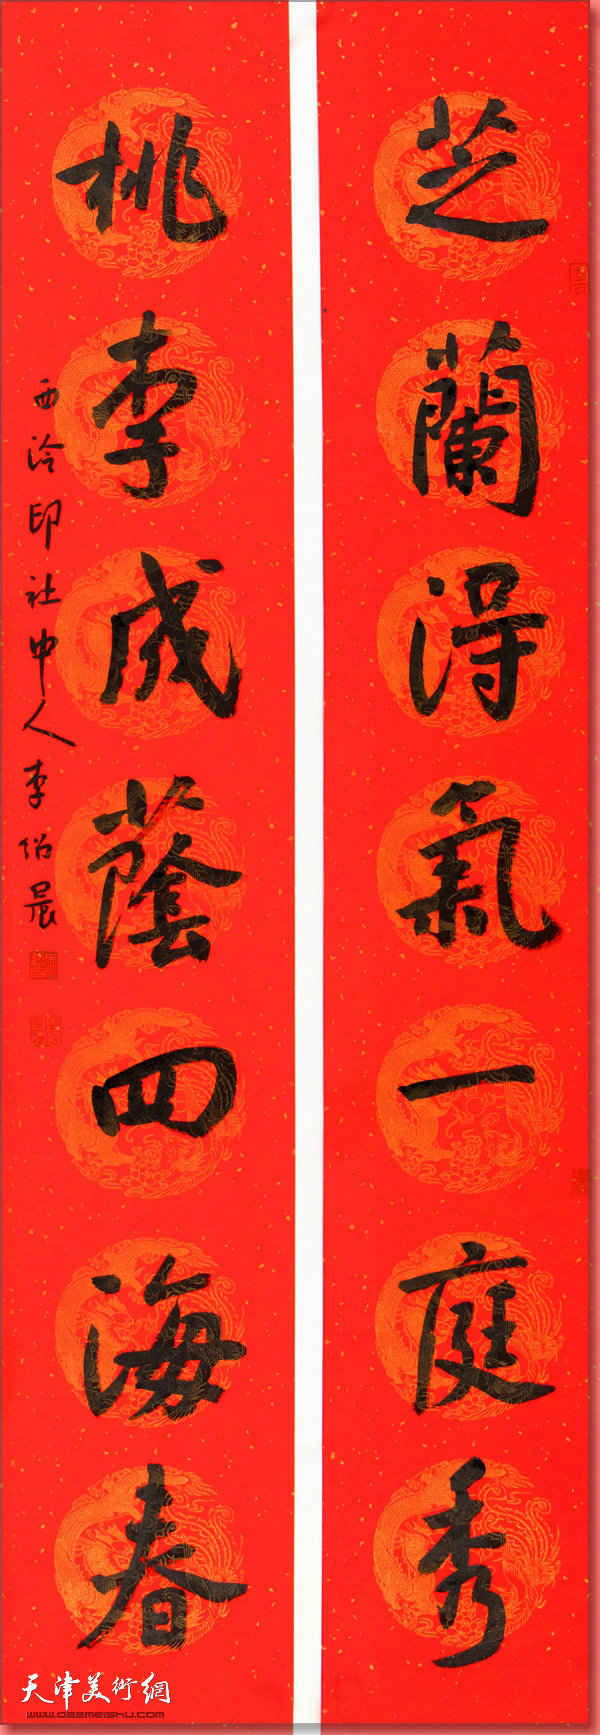 芝蘭得氣一庭秀
桃李成蔭四海春
西泠印社中人李紹晨
天津美術網
www.022meishu.com